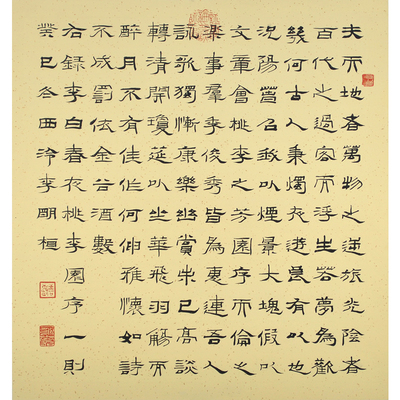 夫天地者萬物之逆旅光陰者
百代之過客而浮生若夢為歡
幾何古人秉燭夜遊良有以也
況陽春召我以煙景大塊假以
文章會桃李之芳園序天倫之
樂事羣季俊秀皆為惠連吾人
詠歌獨慚康樂幽賞未已高談
轉清開瓊筵以坐華飛羽觴而
醉月不有佳作何伸雅懷如詩
不成罰依金谷酒數
右錄李白春夜桃李園序一則
癸巳冬西泠李明桓